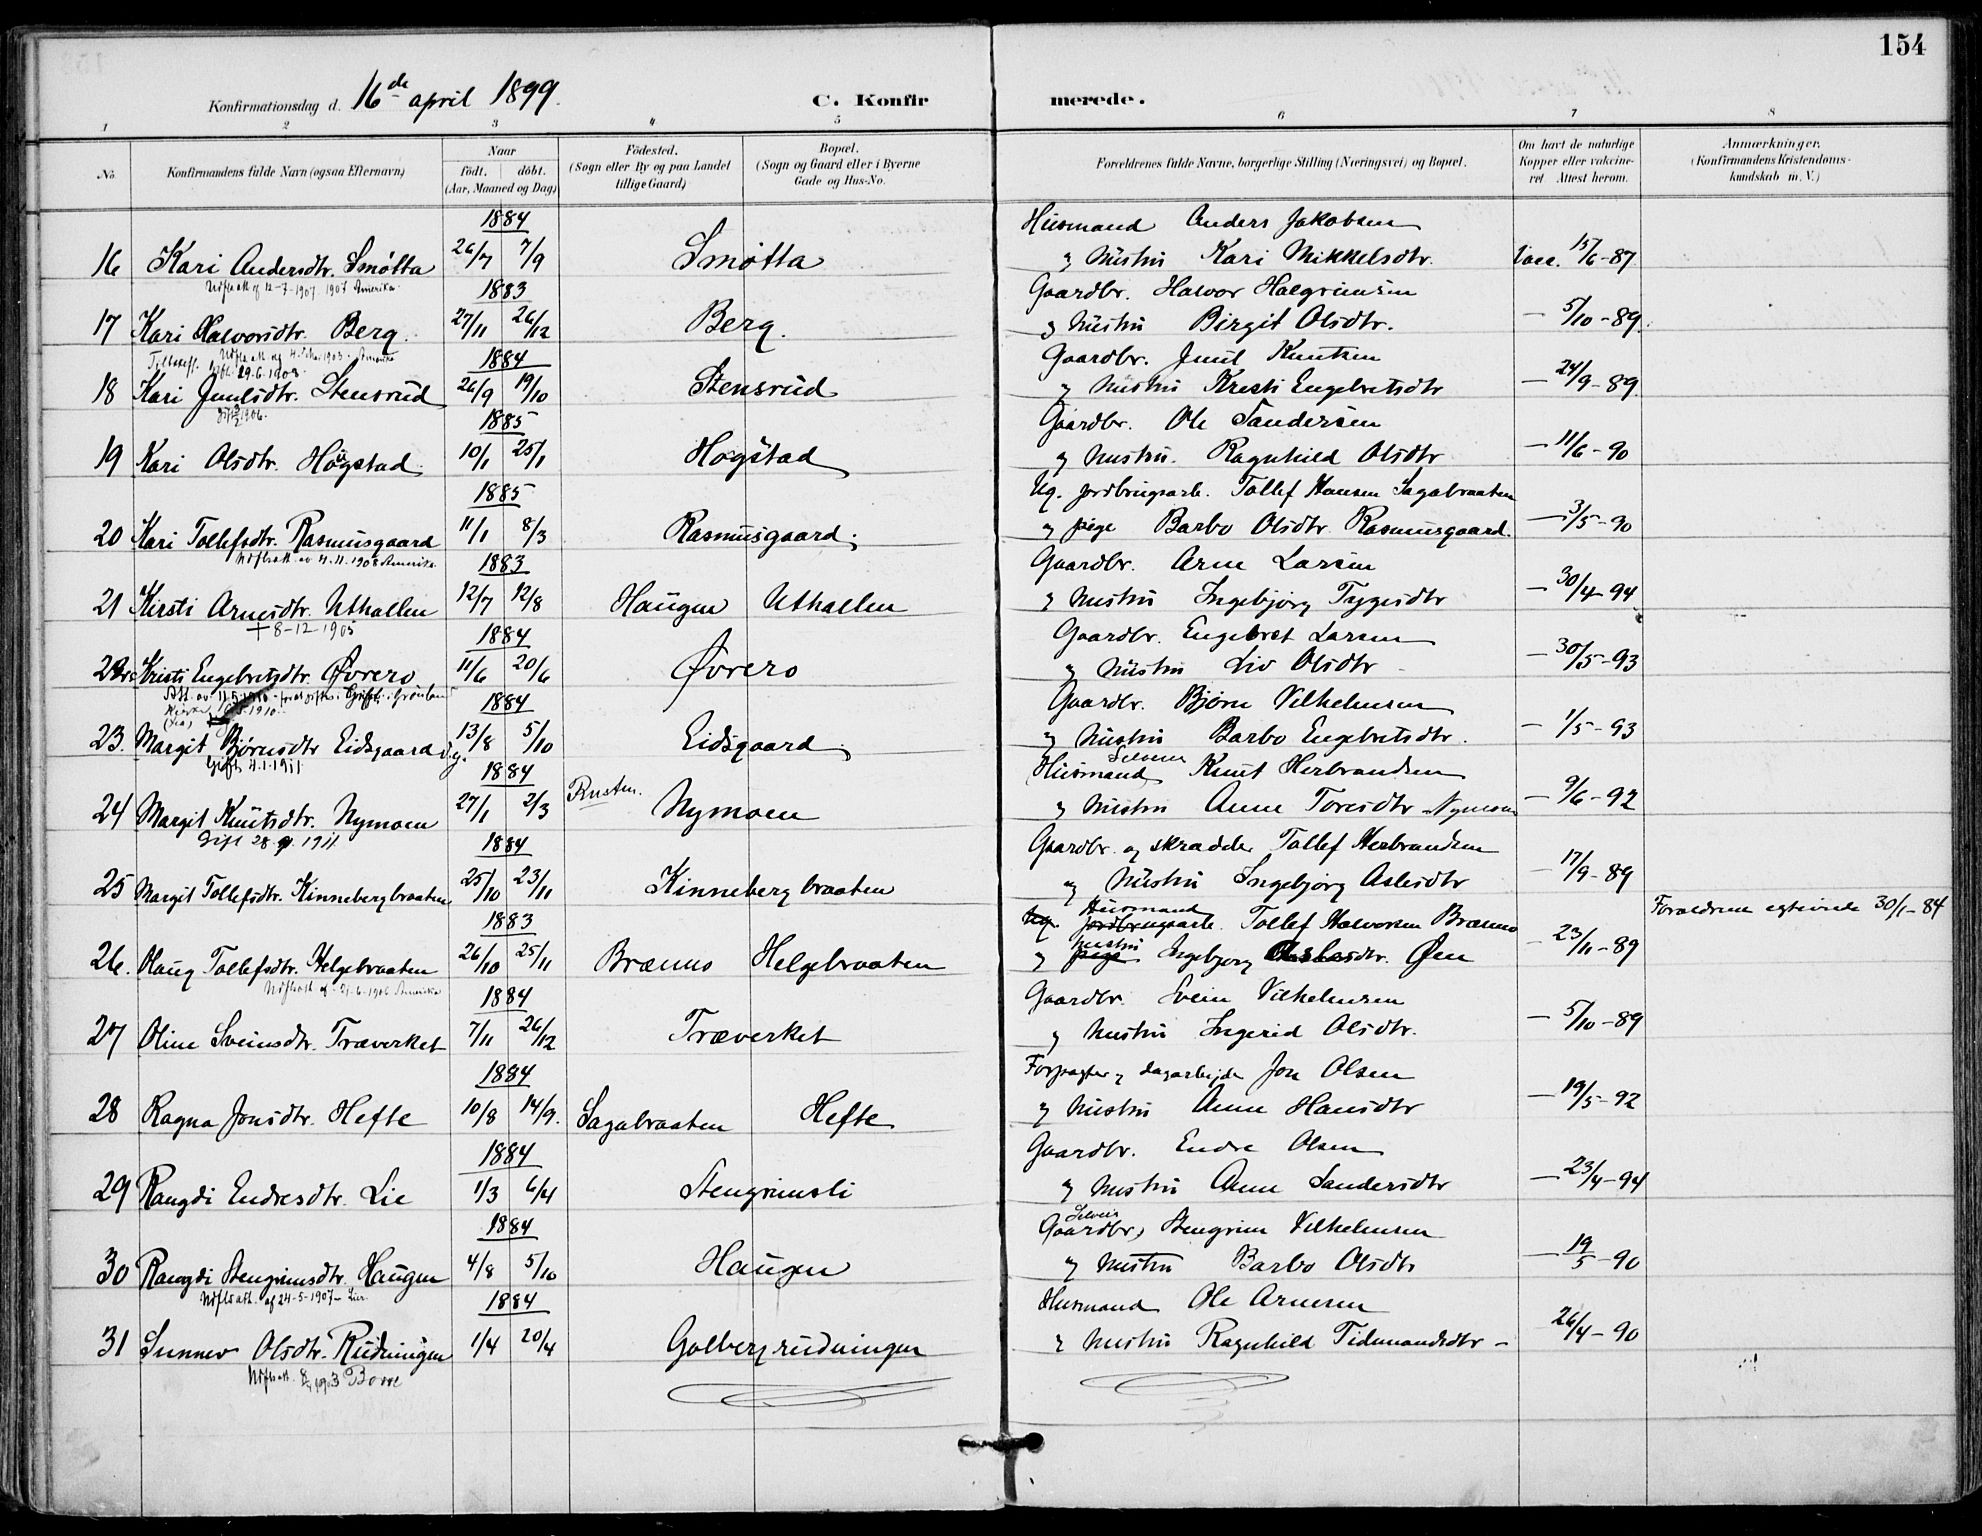 154
Konfirmationsdag d. 16de april 1899.
C. Konfirmerede.
1 2 3 4 5 6 7 8
No
Konfirmandens fulde Navn (ogsaa Efternavn)
Naar
födt. döbt.
(Aar, Maaned og Dag)
Födested.
(Sogn eller By og paa Landet
tillige Gaard)
Bopæl.
(Sogn og Gaard eller i Byerne
Gade og Hus-No.
Forældrenes fulde Navne, borgerlige Stilling (Næringsvei) og Bopæl.
Om havt de naturlige
Kopper eller vakcine-
ret Attest herom.
Anmærkninger.
(Konfirmandens Kristendoms-
kundskab m. V.)
1884
Husmand Anders Jakobsen
16 Kari Andersdtr. Smøtta 26/7 7/9 Smøtta og hustru Kari Mikkelsdtr. Vacc. 15/6-87
Udfl.att af 12-7-1907 1907 Amerika
1883
Gaardbr. Halvor Halgrimsen
17 Kari Halvorsdtr. Berg. 27/11 26/12 Berg. og hustru Birgit Olsdtr. — 5/10-89
1903 Amerika
29.6.1908
1884
Gaardbr. Juul Knutsen
18 Kari Juulsdtr. Stensrud 26/9 19/10 Stensrud og hustru Kresti Engebretsdtr — 24/9-89
1906.
1885
Gaardbr. Ole Sandersen
19 Kari Olsdtr. Høgstad 10/1 25/1 Høgstad og hustru. Ragnhild Olsdtr — 11/6-90
1885
Ug. jordbrugsarb. Tollef Hansen Sagabraaten
20 Kari Tollefsdtr. Rasmusgaard 11/1 8/3 Rasmusgaard. og pige Barbo Olsdtr. Rasmusgaard. — 3/5-90
Udfl.att. av 4.11.1908 Amerika
1883
Gaardbr. Arne Larsen
21 Kirsti Arnesdtr. Uthallen 12/7 12/8 Haugen Uthallen og hustru Ingebjørg Tygesdtr — 30/4-94
† 8-12-1905
1884
Gaardbr. Engebret Larsen
22 Kristi Engebretsdtr. Øvrero 11/6 20/6 Øvrero og hustru Liv Olsdtr — 30/5-93
Att. av 11.5.1910
1884
Gaardbr. Bjørn Vilhelmsen
23. Margit Bjørnsdtr Eidsgaard d.y. 13/8 5/10 Eidsgaard. og hustru Barbo Engebretsdtr. — 1/5-93
Gift 4.1.1911
1884
Selveier
Husmand Knut Herbrandsen
24 Margit Knutsdtr. Nymoen 27/1 2/3 Rusten. Nymoen og hustru Anne Toresdtr Nymoen — 9/6-92
Gift 28 9. 1911.
1884
Gaardbr. og skradder Tollef Herbrandsen
25 Margit Tollefsdtr. Kinnebergbraaten 25/10 23/11 Kinnebergbraaten og hustru Ingebjørg Aslesdtr — 17/9-89
1883
Husmand
Ug. jordbrugsarb. Tollef Halvorsen Brænno Forældrene egteviede 30/1-84
26. Haug Tollefsdtr. Helgebraaten 26/10 25/11 Brænno Helgebraaten og hustru pige Ingebjørg Aslesdtr. Øen — 23/11-89
Udfl.att af 21-6-1906 Amerika
1884
Gaardbr. Svein Vilhelmsen
27 Oline Sveinsdtr. Træverket 7/11 26/12 Træverket og hustru Ingerid Olsdtr. — 5/10-89
1884
Forpagter og dagarbejder Jon Olsen
28 Ragna Jonsdtr. Hefte 10/8 14/9. Sagabraaten Hefte og hustru Anne Hansdtr — 19/5-92
1884
Gaardbr. Endre Olsen
29 Rangdi Endresdtr. Lie 1/3 6/4 Stengrimsli og hustru Anne Sandersdtr — 23/4-94
1884
Selveier
Gaardbr, Stengrim Vilhelmsen
30 Rangdi Stengrimsdtr. Haugen 4/8 5/10 Haugen og hustru Barbo Olsdtr — 19/5-90
Udfl.att. af 24-5-1907- Lier.
1884
Husmand Ole Arnesen
31 Sunnev Olsdtr. Rudningen 1/4 20/4 Golbergrudningen og hustru Ragnhild Tidemandsdtr — 26/4-90
Udfl.att. 1903 Borre